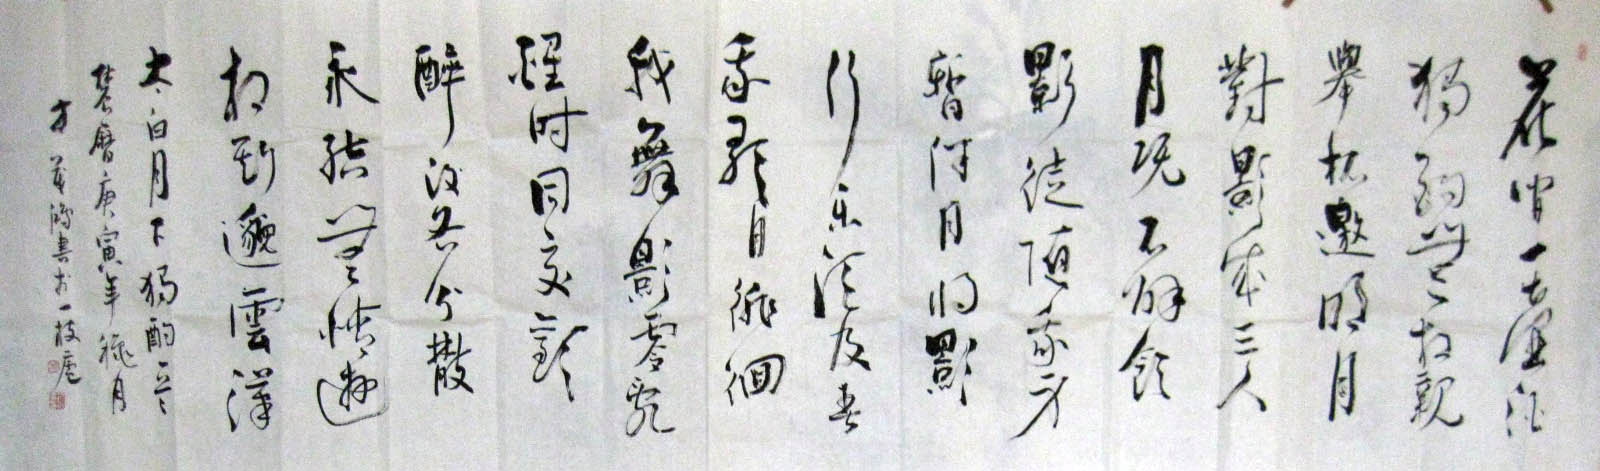 花間一壺酒
獨酌無相親
舉杯邀明月
對影成三人
月既不解飲
影徒隨我身
暫伴月將影
行樂須及春
我歌月徘徊
我舞影零亂
醒時同交歡
醉後各分散
永結無情遊
相期邈雲漢
太白月下獨酌
農曆庚寅年穐月
方鴻書於一枝廬